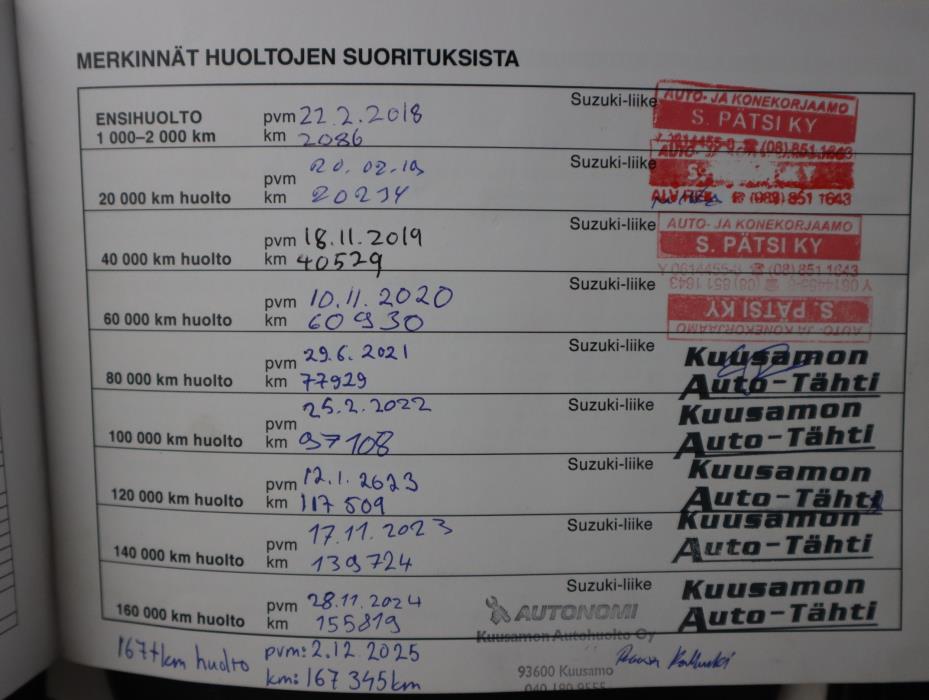 MERKINNÄT HUOLTOJEN SUORITUKSISTA
ENSIHUOLTO
1 000–2 000 km
pvm 22.2.2018
km 2086
Suzuki-liike
AUTO- JA KONEKORJAAMO
S. PÄTSI KY
Y 0614455-8 ☎ (08) 851 1643
20 000 km huolto
pvm 20.02.19
km 20234
Suzuki-liike
AUTO- JA
S. KY
851 1643
40 000 km huolto
pvm 18.11.2019
km 40529
Suzuki-liike
AUTO- JA KONEKORJAAMO
S. PÄTSI KY
Y 0614455-8 ☎ (08) 851 1643
60 000 km huolto
pvm 10.11.2020
km 60930
Suzuki-liike
Y 0614455-8 ☎ (08) 851 1643
S. PÄTSI KY
AUTO- JA KONEKORJAAMO
80 000 km huolto
pvm 29.6.2021
km 77929
Suzuki-liike
Kuusamon
Auto-Tähti
100 000 km huolto
pvm 25.2.2022
km 97108
Suzuki-liike
Kuusamon
Auto-Tähti
120 000 km huolto
pvm 12.1.2023
km 117509
Suzuki-liike
Kuusamon
Auto-Tähti
140 000 km huolto
pvm 17.11.2023
km 139724
Suzuki-liike
Kuusamon
Auto-Tähti
160 000 km huolto
pvm 28.11.2024
km 155819
Suzuki-liike
Kuusamon
Auto-Tähti
AUTONOMI
Kuusamon Autohuolto Oy
93600 Kuusamo
167tkm huolto
pvm: 2.12.2025
km: 167 345km